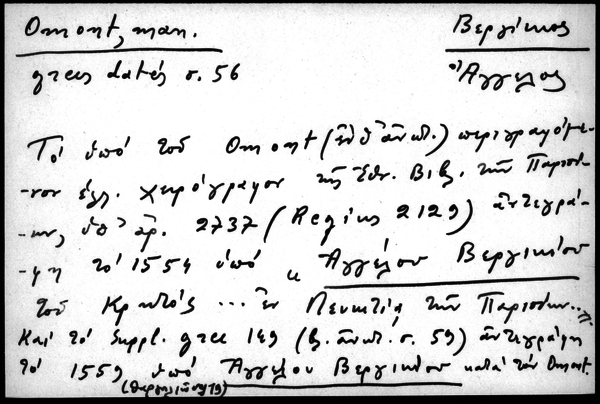 Omont, man. Βεργίκιος
grecs datés σ. 56 Ἄγγελος
Τό ὑπό τοῦ Omont (ἐνθ' ἀνωτ.) περιγραφόμε-
-νον ἑλλ. χειρόγραφον τῆς Ἐθν. Βιβ. τῶν Παρισί-
-ων, ὑπ' ἀρ. 2737 (Regius 2129) ἀντεγρά-
-φη τό 1554 ὑπό "Ἀγγέλου Βεργικίου
τοῦ Κρητός ... ἐν Λευκετίᾳ τῶν Παρισίων...»
Καί τό Suppl. grec 149 (β. ἀνωτ. σ. 59) ἀντεγράφη
τό 1559 ὑπό Ἀγγέλου Βεργικίου κατά τόν Omont.